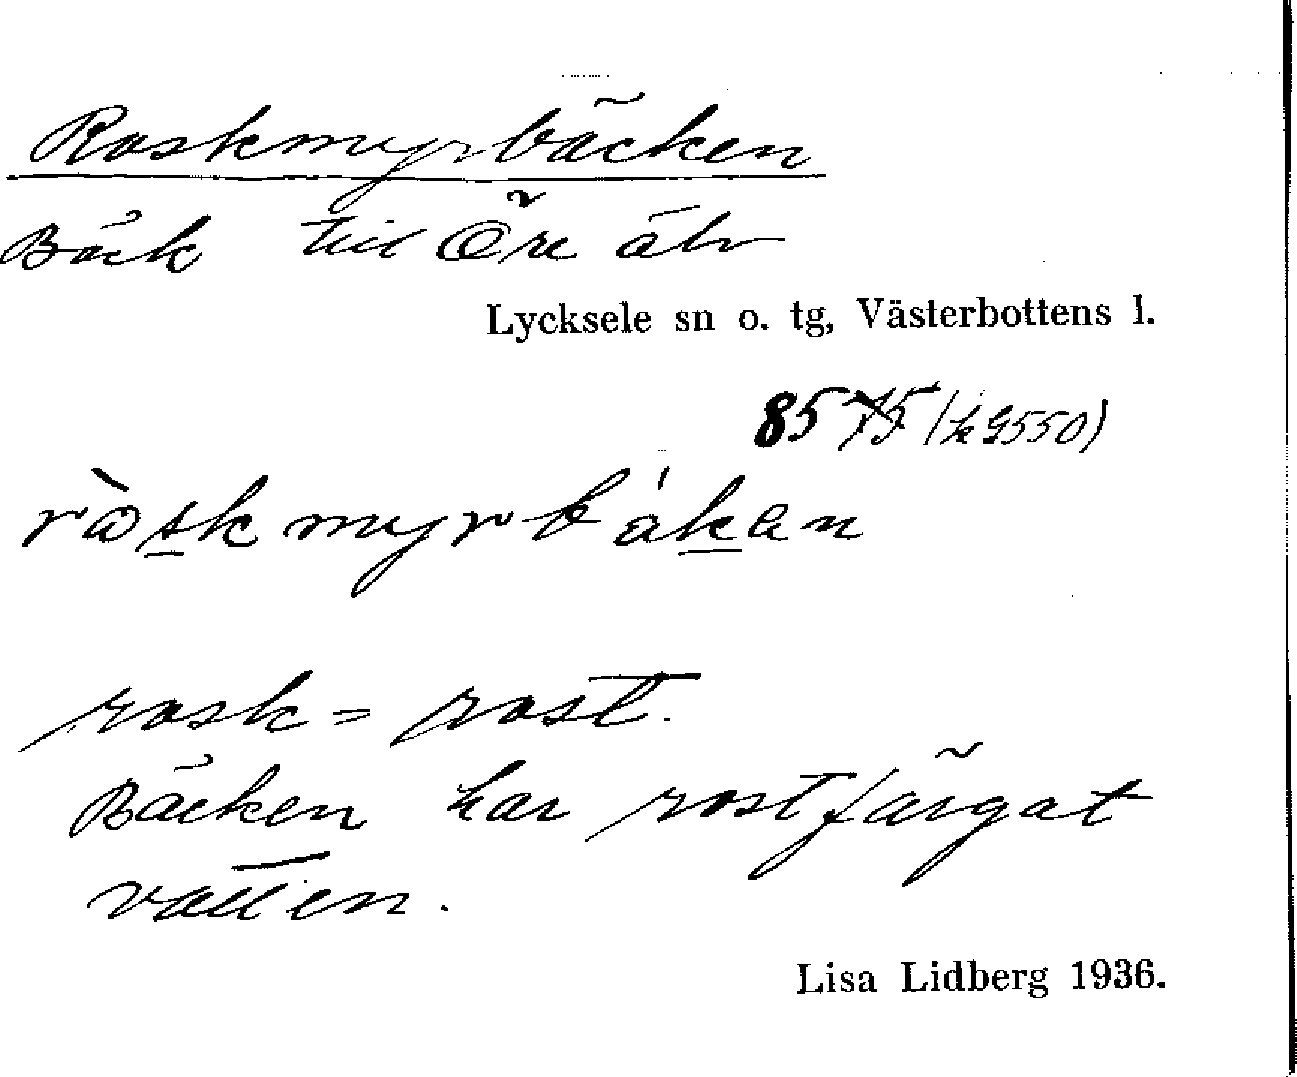 Roskmyrbäcken
Bäck till Öre älv
Lycksele sn o. tg, Västerbottens l.
85 75 (k 9550)
ròskmyrb'akan
rosk = rost.
Bäcken har rostfärgat
vatten.
Lisa Lidberg 1936.